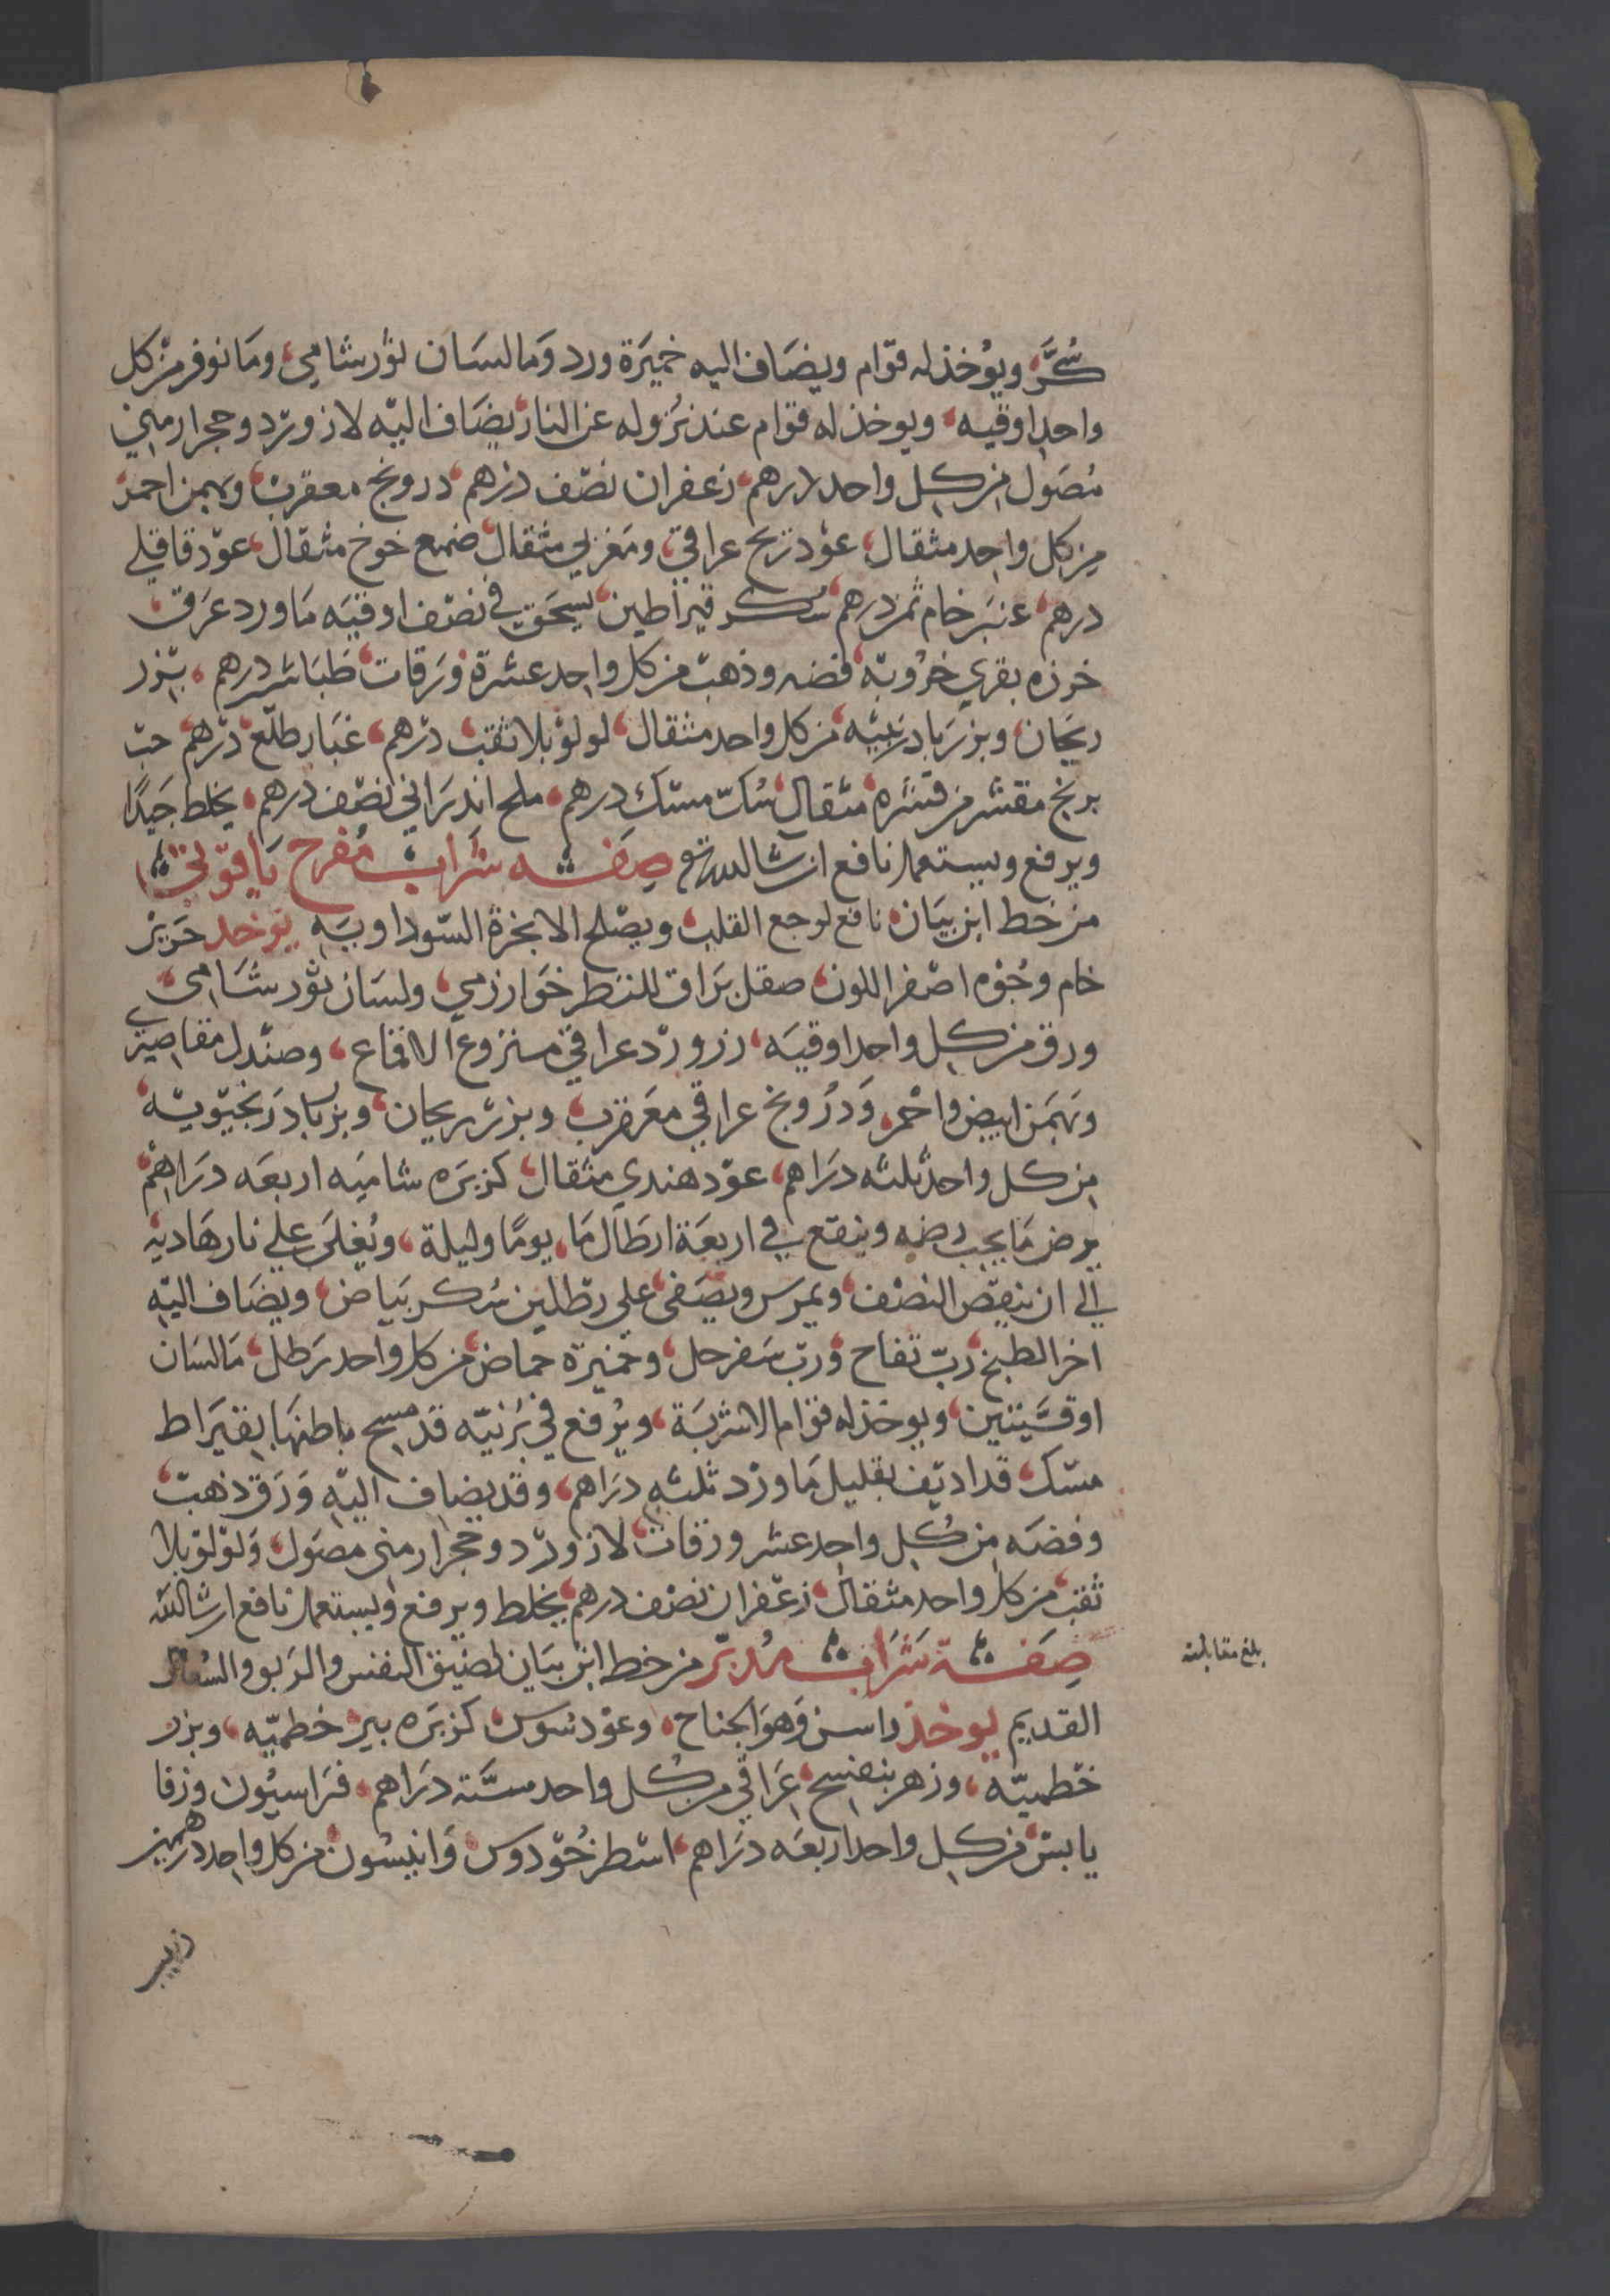 سُكَّر، ويُوخذ له قوّام ويضَاف اليه خميَرة ورد وَمالسَان ثور شامي، ومَا نوفر من كل
واحد اوقيه، ويوخذ له قوام عند نزُوله عن النار يضَاف اليّه لازورّد وحجر ارمني
مُصَول من كل واحد درهم، زعفران نصّف درهم، درونج معقرب، وبهمن احمر
من كل واحد مثقال، عوْد ريح عراقي، ومَغربي مثقال، صمغ خوخ مثقال، عوّد قاقلي
درهم، عنبَر خام ثمن درهم، سُك قيراطين، يسحَق في نصّف اوقيَه مَاورد عرَق،
خرزه بقري خرُوبّه، فضه وذهبّ من كل واحد عشرة ورَقات، طبَاشير درهم، بّزر
ريحَان، وبزر بادرنبيَه، من كل واحد مثقال، لولوْ بلا ثقبّ درْهم، غبَار طلّع درّهم، حبّ
برنج مقشر من قشره مثقال، سُكّ مسّك درهم، ملح اندرَاني نصّف درهم، يخلط جَيدًا
ويرفع ويستعمل نافع ان شا الله تع صفَــه شرَاب مُفرح يَاقوّتي
من خط ابن بيَان، نافع لوجع القلب، ويصْلح الابخرة السّوداويَه يوخد حَريْر
خام وجُوْه اصْفر اللون، صقل برَاق للنظر خوَارزمي، ولسَان ثوْر شَامي،
ورق من كل واحد اوقيَه، زرورْد عراقي منزوع الاقماع، وصنْدل مقاصيري
وبَهمَن ابيض واحْمر، وَدرُونج عراقي معَقرب، وبزر ريحان، وبزر بَادرَنجبوّيَه،
من كل واحد ثلثه درَاهم، عوّد هندي مثقال، كزبرَه شاميَه اربعَه درَاهم،
يرض مَا يجب رضه وينقع في اربعَة ارطَال مَا، يومًا وليلة، ويُغلىَ علي نار هَاديَه
الي ان ينقصّ النصْف، ويمرس ويصَفى، علي رطّلين سُكر بيَاض، ويضَاف اليّه
اخر الطبخ، ربّ تفاح، وربّ سَفرجل، وخميْرة حماض، من كل واحد رَطل، مَالسَان
اوقيَّتين، ويوخذ له قوام الاشربَة، ويُرفع في برَنيّه قد مسِح باطنهَا بقيرَاط
مسّك، قد اديّف بقليل مَاورْد ثلثه درَاهم، وقد يضَاف اليّه وَرَق ذهبّ
وفضَه من كُل واحد عشر ورقات، لازورْد وحجر ارمني مصَول، وَلوْلوْ بلا
ثقب، من كل واحد مثقال، زعْفران نصْف درهم، يخلط ويرفع ويستعمل نافع ان شا الله
صِفَــة شرَاب مُدبّر من خط ابن بيَان لضيق النفس والرَبو والسُعال
القديم يوخذ راسن وَهو الجناح، وعوْد سُوس، كزبرَه بير، خطميّه، وبزر
خطميّه، وزهر بنفسج، عرَاقي من كل واحد ستَّة درَاهم، فرَاسيُون، وزفا
يابسّ، من كل واحد اربعَه درَاهم، اسْطوخُوّدوس، وَانيسُون، من كل واحد درهمين
زبيب
بلغ مقابلته